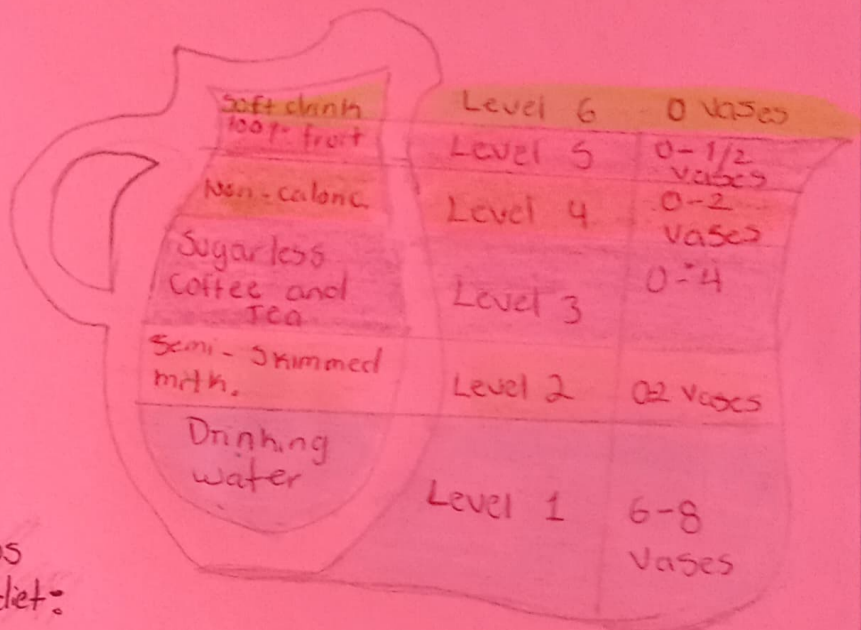 Soft drink Level 6 0 vases
100% fruit Level 5 0-1/2
vases
Non-caloric. Level 4 0-2
vases
Sugarless
coffee and
Tea
Level 3 0-4
Semi-skimmed
milk.
Level 2 02 vases
Drinking
water
Level 1 6-8
Vases
os
diet: